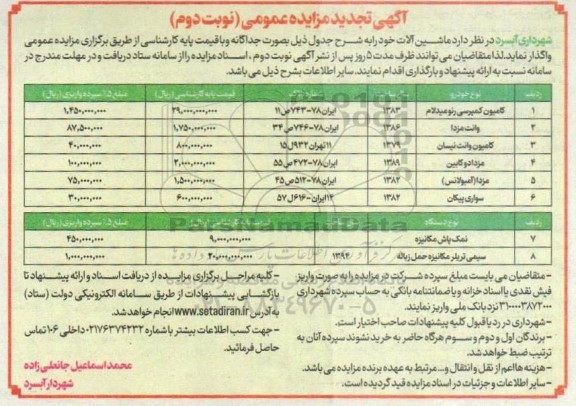 آگهی تجدید مزایده عمومی (نوبت دوم)
شهرداری آبسرد در نظر دارد ماشین آلات خود را به شرح جدول ذیل بصورت جداگانه و با قیمت پایه کارشناسی از طریق برگزاری مزایده عمومی
واگذار نماید. لذا متقاضیان می توانند ظرف مدت ۵ روز پس از نشر آگهی نوبت دوم، اسناد مزایده را از سامانه ستاد دریافت و در مهلت مندرج در
سامانه نسبت به ارائه پیشنهاد و بارگذاری اقدام نمایند. سایر اطلاعات بشرح ذیل می باشد.
ردیف نوع خودرو قیمت پایه کارشناسی (ریال) مبلغ ۵٪ سپرده واریزی (ریال)
۱ کامیون کمپرسی رنو میدلام ۱۳۸۳ ایران ۷۸-۷۴۳ص۱۱ ۲۹,۰۰۰,۰۰۰,۰۰۰ ۱,۴۵۰,۰۰۰,۰۰۰
۲ وانت مزدا ۱۳۸۶ ایران ۷۸-۷۴۶ص۳۴ ۱,۷۵۰,۰۰۰,۰۰۰ ۸۷,۵۰۰,۰۰۰
۳ کامیون وانت نیسان ۱۳۷۹ ۱۱تهران ۹۳۲ل۱۵ ۸۰۰,۰۰۰,۰۰۰ ۴۰,۰۰۰,۰۰۰
۴ مزدا دو کابین ۱۳۸۹ ایران ۷۸-۴۷۲ص۵۵ ۲,۰۰۰,۰۰۰,۰۰۰ ۱۰۰,۰۰۰,۰۰۰
۵ مزدا (آمبولانس) ۱۳۸۲ ایران ۷۸-۵۱۲ص۴۵ ۱,۵۰۰,۰۰۰,۰۰۰ ۷۵,۰۰۰,۰۰۰
۶ سواری پیکان ۱۳۸۲ ۱۲ایران-۶۱۶ل۵۷ ۶۰۰,۰۰۰,۰۰۰ ۳۰,۰۰۰,۰۰۰
ردیف نوع دستگاه مبلغ ۵٪ سپرده واریزی (ریال)
۷ نمک پاش مکانیزه ۹,۰۰۰,۰۰۰,۰۰۰ ۴۵۰,۰۰۰,۰۰۰
۸ سیمی تریلر مکانیزه حمل زباله ۱۳۹۴ ۲۰,۰۰۰,۰۰۰,۰۰۰ ۱,۰۰۰,۰۰۰,۰۰۰
ParsNamadData
- متقاضیان می بایست مبلغ سپرده شرکت در مزایده را به صورت واریز
فیش نقدی یا اسناد خزانه و یا ضمانتنامه بانکی به حساب سپرده شهرداری
نزد بانک ملی واریز نمایند.
- شهرداری در رد یا قبول کلیه پیشنهادات صاحب اختیار است.
- برندگان اول و دوم و سوم هرگاه حاضر به خرید نشوند سپرده آنان به
ترتیب ضبط خواهد شد.
- هزینه ها اعم از نقل و انتقال و... مرتبط به عهده برنده مزایده می باشد.
- سایر اطلاعات و جزئیات در اسناد مزایده قید گردیده است.
- کلیه مراحل برگزاری مزایده از دریافت اسناد و ارائه پیشنهاد تا
بازگشایی پیشنهادات از طریق سامانه الکترونیکی دولت (ستاد)
به آدرس www.setadiran.ir انجام خواهد شد.
- جهت کسب اطلاعات بیشتر با شماره ۰۲۱۷۶۳۷۴۲۳۲ داخلی ۱۰۶ تماس
حاصل فرمائید.
محمد اسماعیل جانعلی زاده
شهردار آبسرد